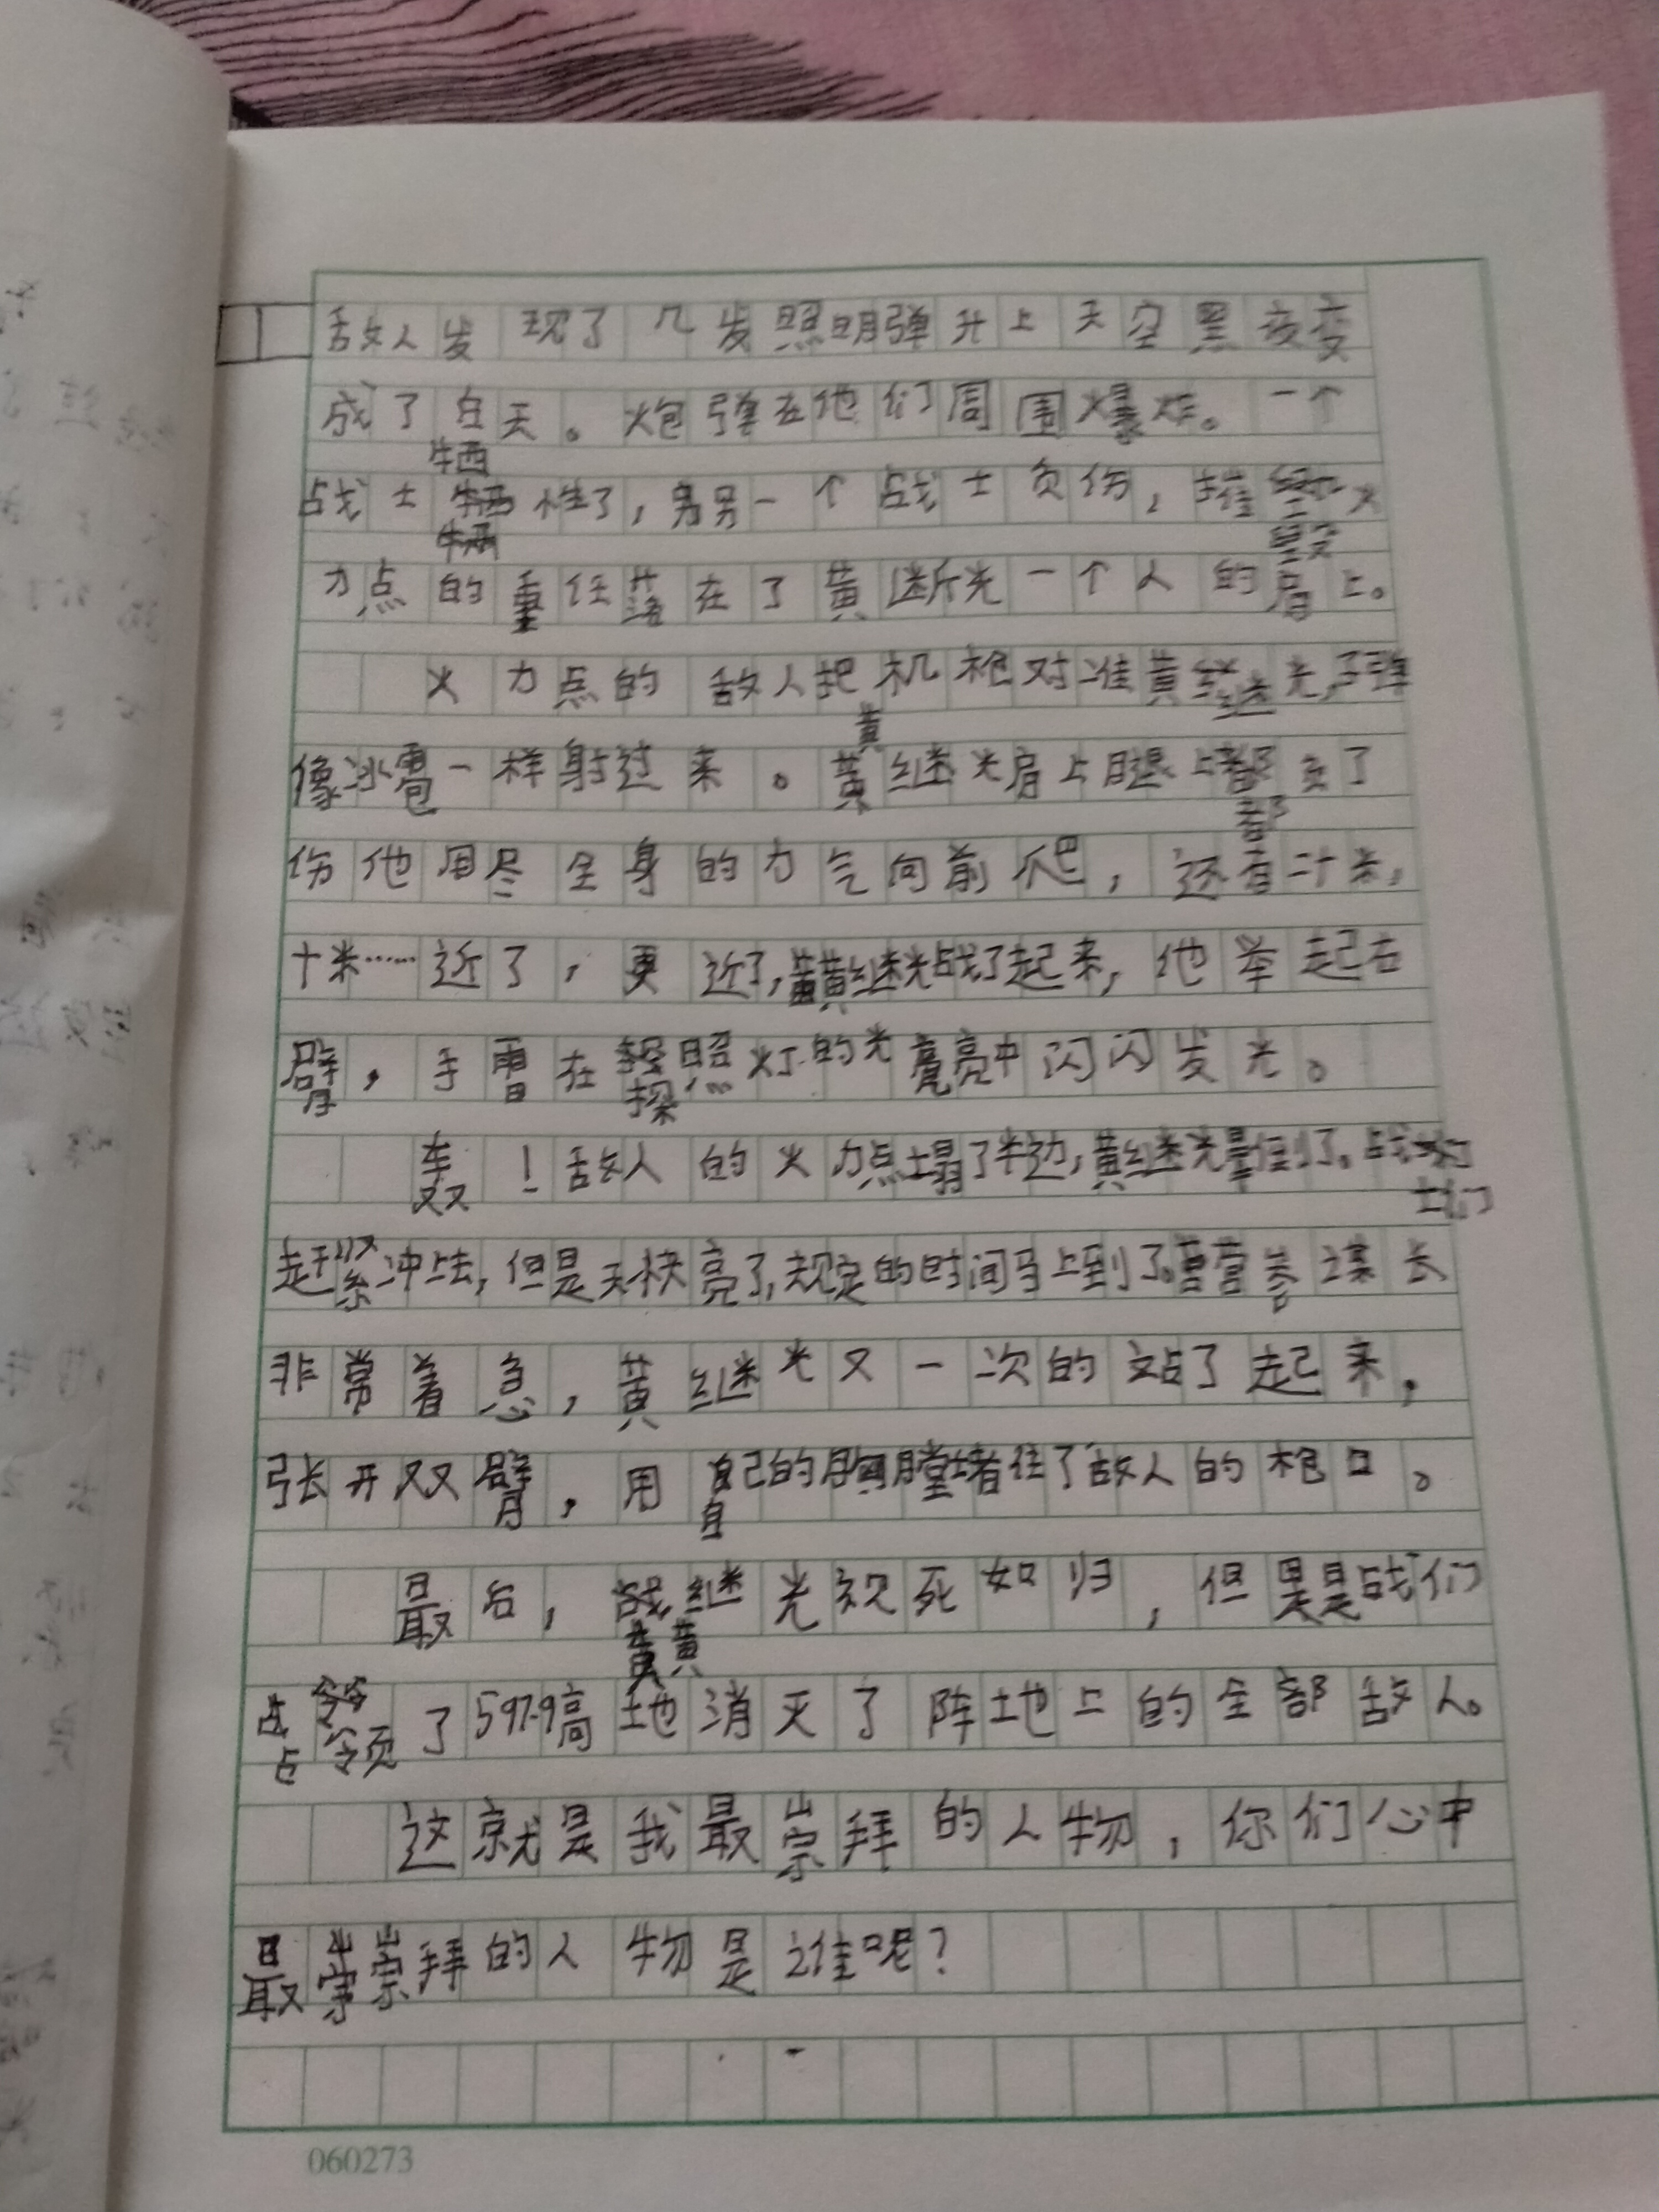 敌人发现了几发照明弹升上天空黑夜变
成了白天。炮弹在他们周围爆炸。一个
战士牺牲了，另一个战士负伤，摧毁火
力点的重任落在了黄断光一个人的肩上。
火力点的敌人把机枪对准黄继光，子弹
像冰雹一样射过来。黄继光肩上腿上都负了
伤他用尽全身的力气向前爬，还有二十米，
十米……近了，更近了，黄继光战了起来，他举起右
臂，手雷在探照灯的光亮中闪闪发光。
轰！敌人的火力点塌了半边，黄继光晕倒了。战士们
赶紧冲上去，但是天快亮了，规定的时间马上到了。营参谋长
非常着急，黄继光又一次的站了起来，
张开双臂，用自己的胸膛堵住了敌人的枪口。
最后，黄继光视死如归，但是战们
占领了597.9高地消灭了阵地上的全部敌人。
这就是我最崇拜的人物，你们心中
最崇拜的人物是谁呢？
060273